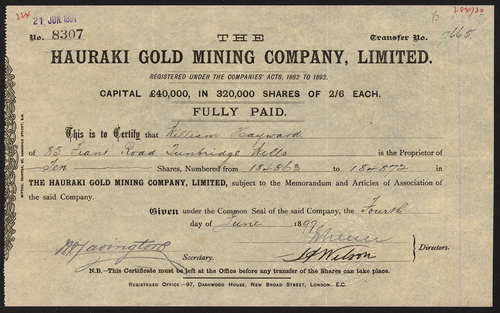 21 JUN. 1897
THE
No. 8307
Transfer No.
HAURAKI GOLD MINING COMPANY, LIMITED.
REGISTERED UNDER THE COMPANIES' ACTS, 1862 TO 1892.
CAPITAL £40,000, IN 320,000 SHARES OF 2/6 EACH.
FULLY PAID.
This is to Certify that William Hayward
of 85 Frant Road Tunbridge Wells is the Proprietor of
Ten Shares, Numbered from 184863 to 184872 in
THE HAURAKI GOLD MINING COMPANY, LIMITED, subject to the Memorandum and Articles of Association of
the said Company.
Given under the Common Seal of the said Company, the Fourth
day of June 1897
Secretary.
J.A. Wilson
Directors.
N.B.—This Certificate must be left at the Office before any transfer of the Shares can take place.
REGISTERED OFFICE:—97, DASHWOOD HOUSE, NEW BROAD STREET, LONDON. E.C.